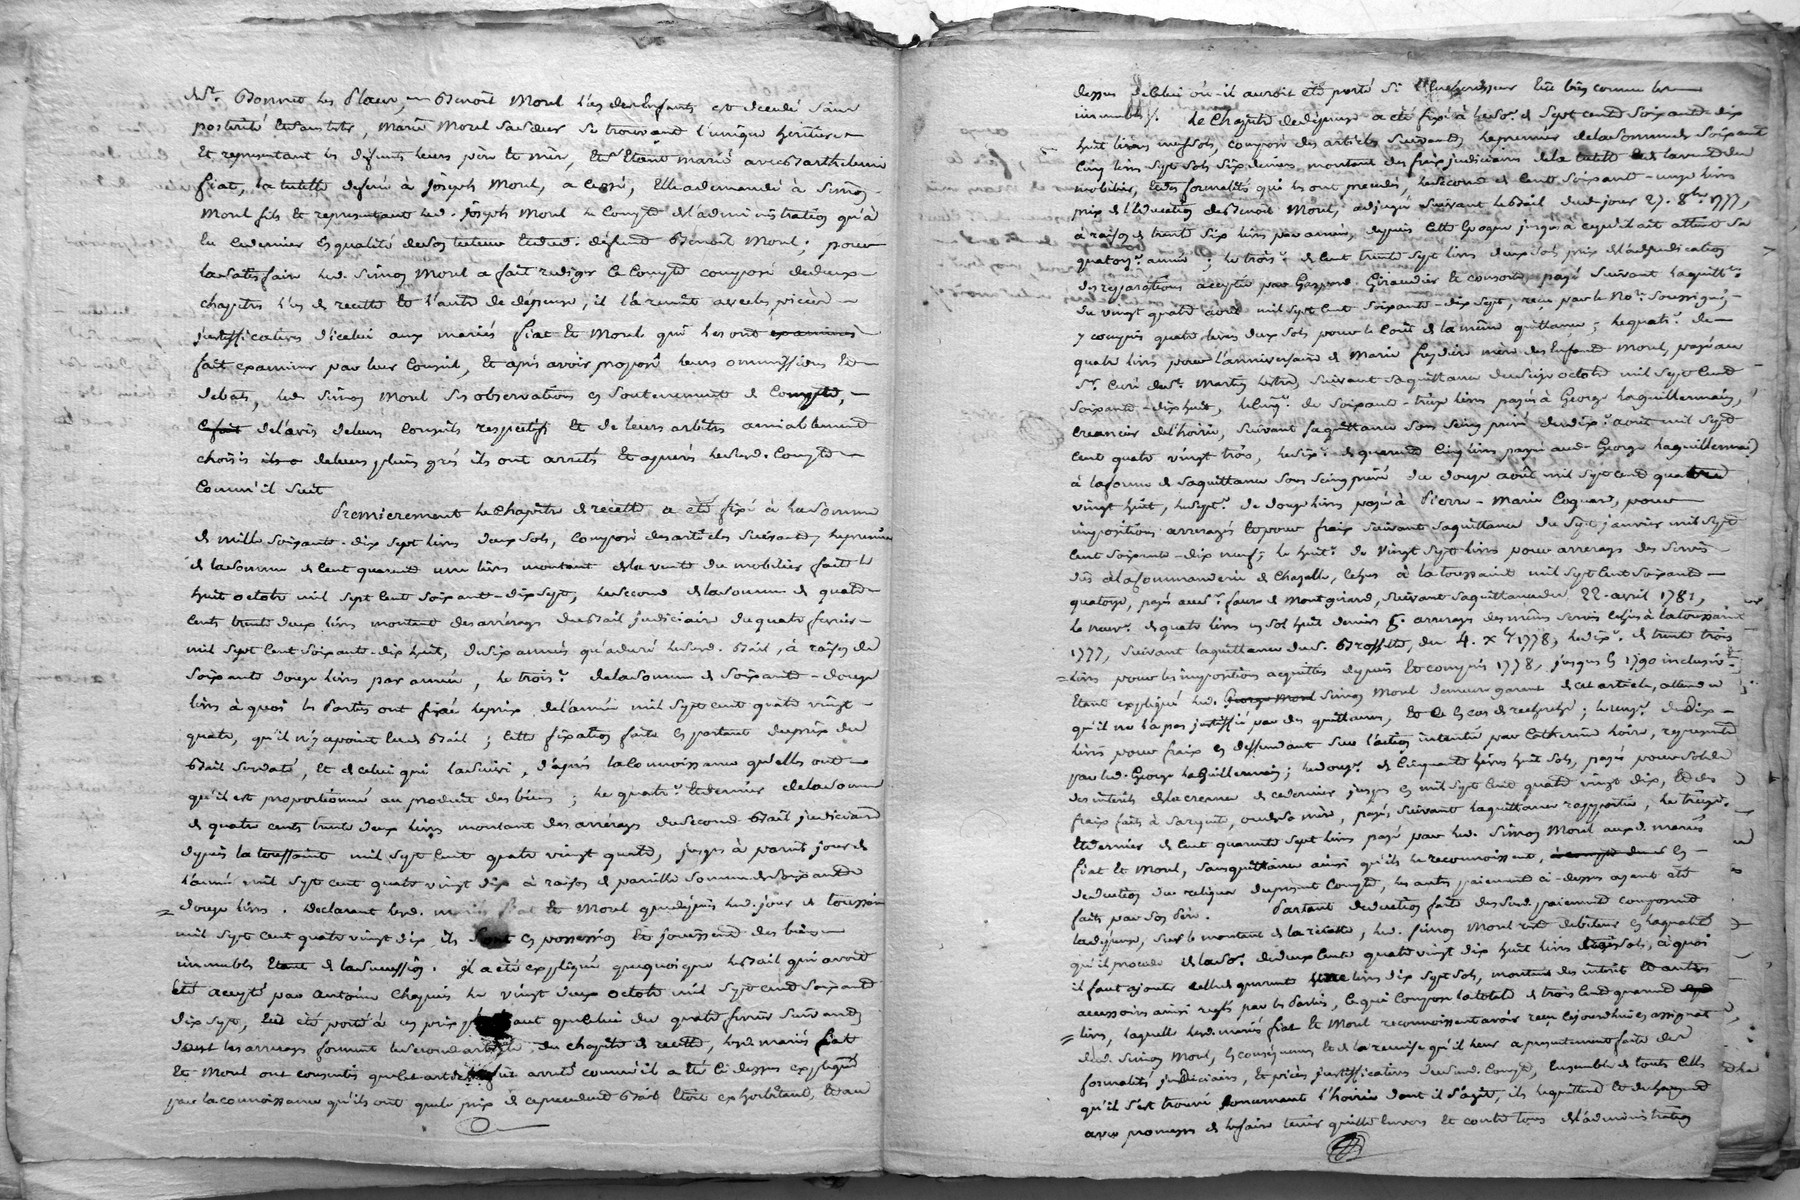 posterité, Marie Morel sa sœur se trouvant l'unique heritiere
Et representant les defunts leurs père et mère, Etant marié avec Barthelemi
fiat, la tutelle deferé à Joseph Morel, a cessé, Elle a demandé à Simon
Morel fils et representant led. Joseph Morel le compte de l'administration qu'a
Eu ce dernier En qualité de son tuteur et dud. défunt Benoit Morel; pour
la satisfaire led. Simon Morel a fait rediger le compte composé de deux
chapitres l'un de recette et l'autre de dépense, il l'a remit avec les pieces
justifficatives d'icelui aux mariés fiat et Morel qui les ont examinés
fait examiner par leur Conseil, Et après avoir proposé leurs ommissions et
debats, led. Simon Morel ses observations en soutenement de compte,
de l'avis de leurs conseils respectifs Et de leurs arbitres amiablement
choisis de leurs pleins grés ils ont arreté Et led. Compte
Comm'il suit
Premierement le chapitre de recette a eté fixé à la somme
de mille soixante-dix sept livres deux sols, composé des articles suivants, le premier
de la somme de cent quarante une livres montant de la vente du mobilier faite le
huit octobre mil sept cent soixante-dix sept, le second de la somme de quatre
cents trente deux livres montant des arrérages du bail judiciaire du quatre fevrier
mil sept cent soixante-dix huit, de six années qu'a duré led. bail, à raison de
soixante douze livres par année, le trois.e de la somme de soixante-douze
livres à quoi les parties ont fixée le prix de l'année mil sept cent quatre vingt
quatre, qu'il n'y a point eu de bail; cette fixation faite en partant du prix du
bail sus daté, et de celui qui l'a suivi, d'après la connoissance qu'elles ont
qu'il est proportionné au produit des biens; le quatr.e et dernier de la somme
de quatre cents trente deux livres montant des arrérages du second bail judiciaire
depuis la toussaint mil sept cent quatre vingt quatre, jusqu'à pareil jour de
l'année mil sept cent quatre vingt dix à raison de pareille somme de soixante
douze livres. Declarant lesd. mariés fiat et Morel que depuis led. jour de toussaint
mil sept cent quatre vingt dix, ils sont en possession Et jouissance des biens
immeubles de la succession. il a eté expliqué que quoique le bail qui avoit
été accepté par Antoine Chapuis le vingt deux octobre mil sept cent soixante
dix sept, eut eté porté à un prix que celui du quatre fevrier suivant
dont les arrerages forment le second article du chapitre de recette, lesd. mariés fiat
Et Morel ont consentis que cet article fut arreté comm'il a eté ci dessus expliqué
par la connoissance qu'ils ont que le prix de ce precedent bail etoit exhorbitant, et au
dessus de celui où il auroit eté porté si l'encherisseur eut bien connu les
immeubles. Le chapitre de depense a eté fixé à la so.e de sept cents soixante dix
huit livres neuf sols, composé des articles suivants, le premier de la somme de soixante
cinq livres sept sols six deniers, montant des fraix judiciaires de la tutelle et de la vente du
mobilier, et des formalités qui les ont precedés, le second de cent soixante-onze livres
prix de l'education de Benoit Morel, adjugée suivant le bail dud. jour 27. 8bre 1777,
à raison de trente six livres par année, depuis cette epoque jusqu'à ce qu'il ait atteint sa
quatorz.e année; le trois.e de cent trente sept livres deux sols prix de l'adjudication
des reparations acceptée par Gaspard Giraudier et consorts payé suivant la quitt.e
du vingt quatre aout mil sept cent soixante-dix sept, reçue par le No.re soussigné,
y compris quatre livres deux sols pour le cout de la même quittance; le quatr.e de
quatre livres pour l'anniversaire de Marie mere des enfants Morel, payé au
Sr. Curé de St. Martin, suivant sa quittance du seize octobre mil sept cent
soixante-dix huit, le cinq.e de soixante-treize livres payés à George Laguillermain,
creancier de l'hoirie, suivant sa quittance sous seing privé du dix.e aout mil sept
cent quatre vingt trois, le six.e de quarante cinq livres payé aud. George Laguillermain
à la forme de sa quittance sous seing privé du douze août mil sept cent quatre
vingt huit, le sept.e de douze livres payé à Pierre-Marie Coquard, pour
impositions arreragés et pour fraix suivant sa quittance du sept janvier mil sept
cent soixante-dix neuf; le huit.e de vingt sept livres pour arrerages des servis
dus à la Commanderie de Chazelle, echus à la toussaint mil sept cent soixante
quatorze, payé au sr. faure de Montgirard, suivant sa quittance du 22. avril 1781,
le neuv.e de quatre livres un sol huit deniers p.r arrerages des mêmes servis echus à la toussaint
1777, suivant la quittance du s. Brossette, du 4. xbre 1778, le dix.e de trente trois
livres pour les impositions acquittées depuis et compris 1778, jusques en 1790 inclusiv.t
Etant expliqué led. George Morel Simon Morel demeure garant de cet article, attendu
qu'il ne l'a pas justifié par des quittances, Et ce en cas de recherche; le onz.e de dix
livres pour fraix en deffendant sur l'action intentée par Catherine hoire, representée
par led. George Laguillermain; le douz.e de cinquante livres huit sols, payés pour solde
des interets de la creance de ce dernier jusqu'en mil sept cent quatre vingt dix, et des
fraix faits à sa requete, ou de sa mère, payés suivant la quittance rapportée, le treize.
Et dernier de cent quarante sept livres payé par led. Simon Morel auxd. mariés
fiat et Morel, sans quittance ainsi qu'ils le reconnoissent, en
deduction du reliqua du present compte, les autres paiements ci-dessus ayant eté
faits par son père. Partant deduction faite desd. paiements composant
la depense, sur le montant de la recette, led. Simon Morel reste debiteur en la qualité
qu'il procede de la so.e de deux cents quatre vingt dix huit livres treize sols, à quoi
il faut ajouter celle de quarante une livres dix sept sols, montant des interets et autres
accessoires ainsi reglés par les parties, ce qui compose la totale de trois cent quarante
livres, laquelle lesd. mariés fiat et Morel reconnoissent avoir reçu cejourdhui en assignats
dud. Simon Morel, En consequence et de la remise qu'il leur a presentement faite des
formalités judiciaires, Et pieces justifficatives dud. Compte, Ensemble de touts ceux
qu'il s'est trouvé concernant l'hoirie dont il s'agit, ils le quittent et dechargent
avec promesse de le faire tenir quitte Envers et contre tous de l'administration